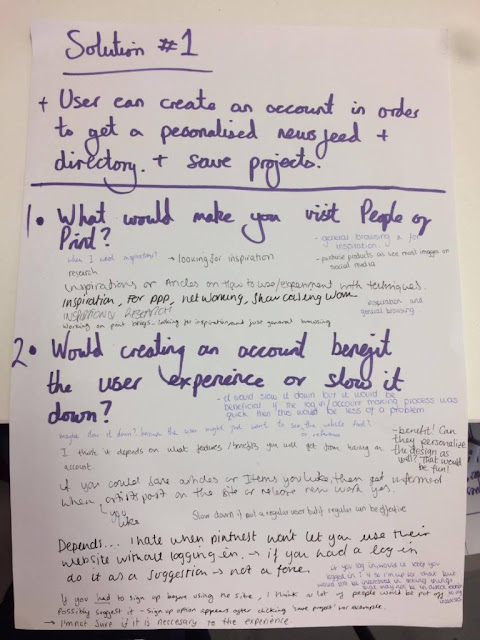 Solution #1
+ User can create an account in order
to get a pesonalised newsfeed +
directory. + save projects.
1. What would make you visit People of
Print?
- general browsing & for
inspiration.
when I want inspiration! → looking for inspiration
- purchase products as see most images on
social media
research
Inspirations or Articles on How to use/experiment with techniques.
inspiration, for PPP, networking, showcasing work
inspiration and
general browsing
INSPIRATION/ RESEARCH
Working on print briefs - looking for inspiration and just general browsing
2. Would creating an account benefit
the user experience or slow it
down?
- it would slow it down but it would be
beneficial if the log in/account making process was
quick then this would be less of a problem
maybe slow it down? because the user might just want to see the whole
I think it depends on what features/benefits you will get from having an
account
- benefit! Can
they personalise
the design as
well? That would
be fun!
if you could save articles or items you like, then get informed
when artists post on the site or release new work yes.
you
like
Slow down if not a regular user but if regular can be effective
Depends... I hate when pintrest wont let you use their
website without logging in. → if you had a log in
do it as a suggestion → not a force.
If you had to sign up before using the site, I think a lot of people would be put off
Possibly suggest it - sign up option appears after clicking 'save project' for example.
→ I'm not sure if it is necessary to the experience